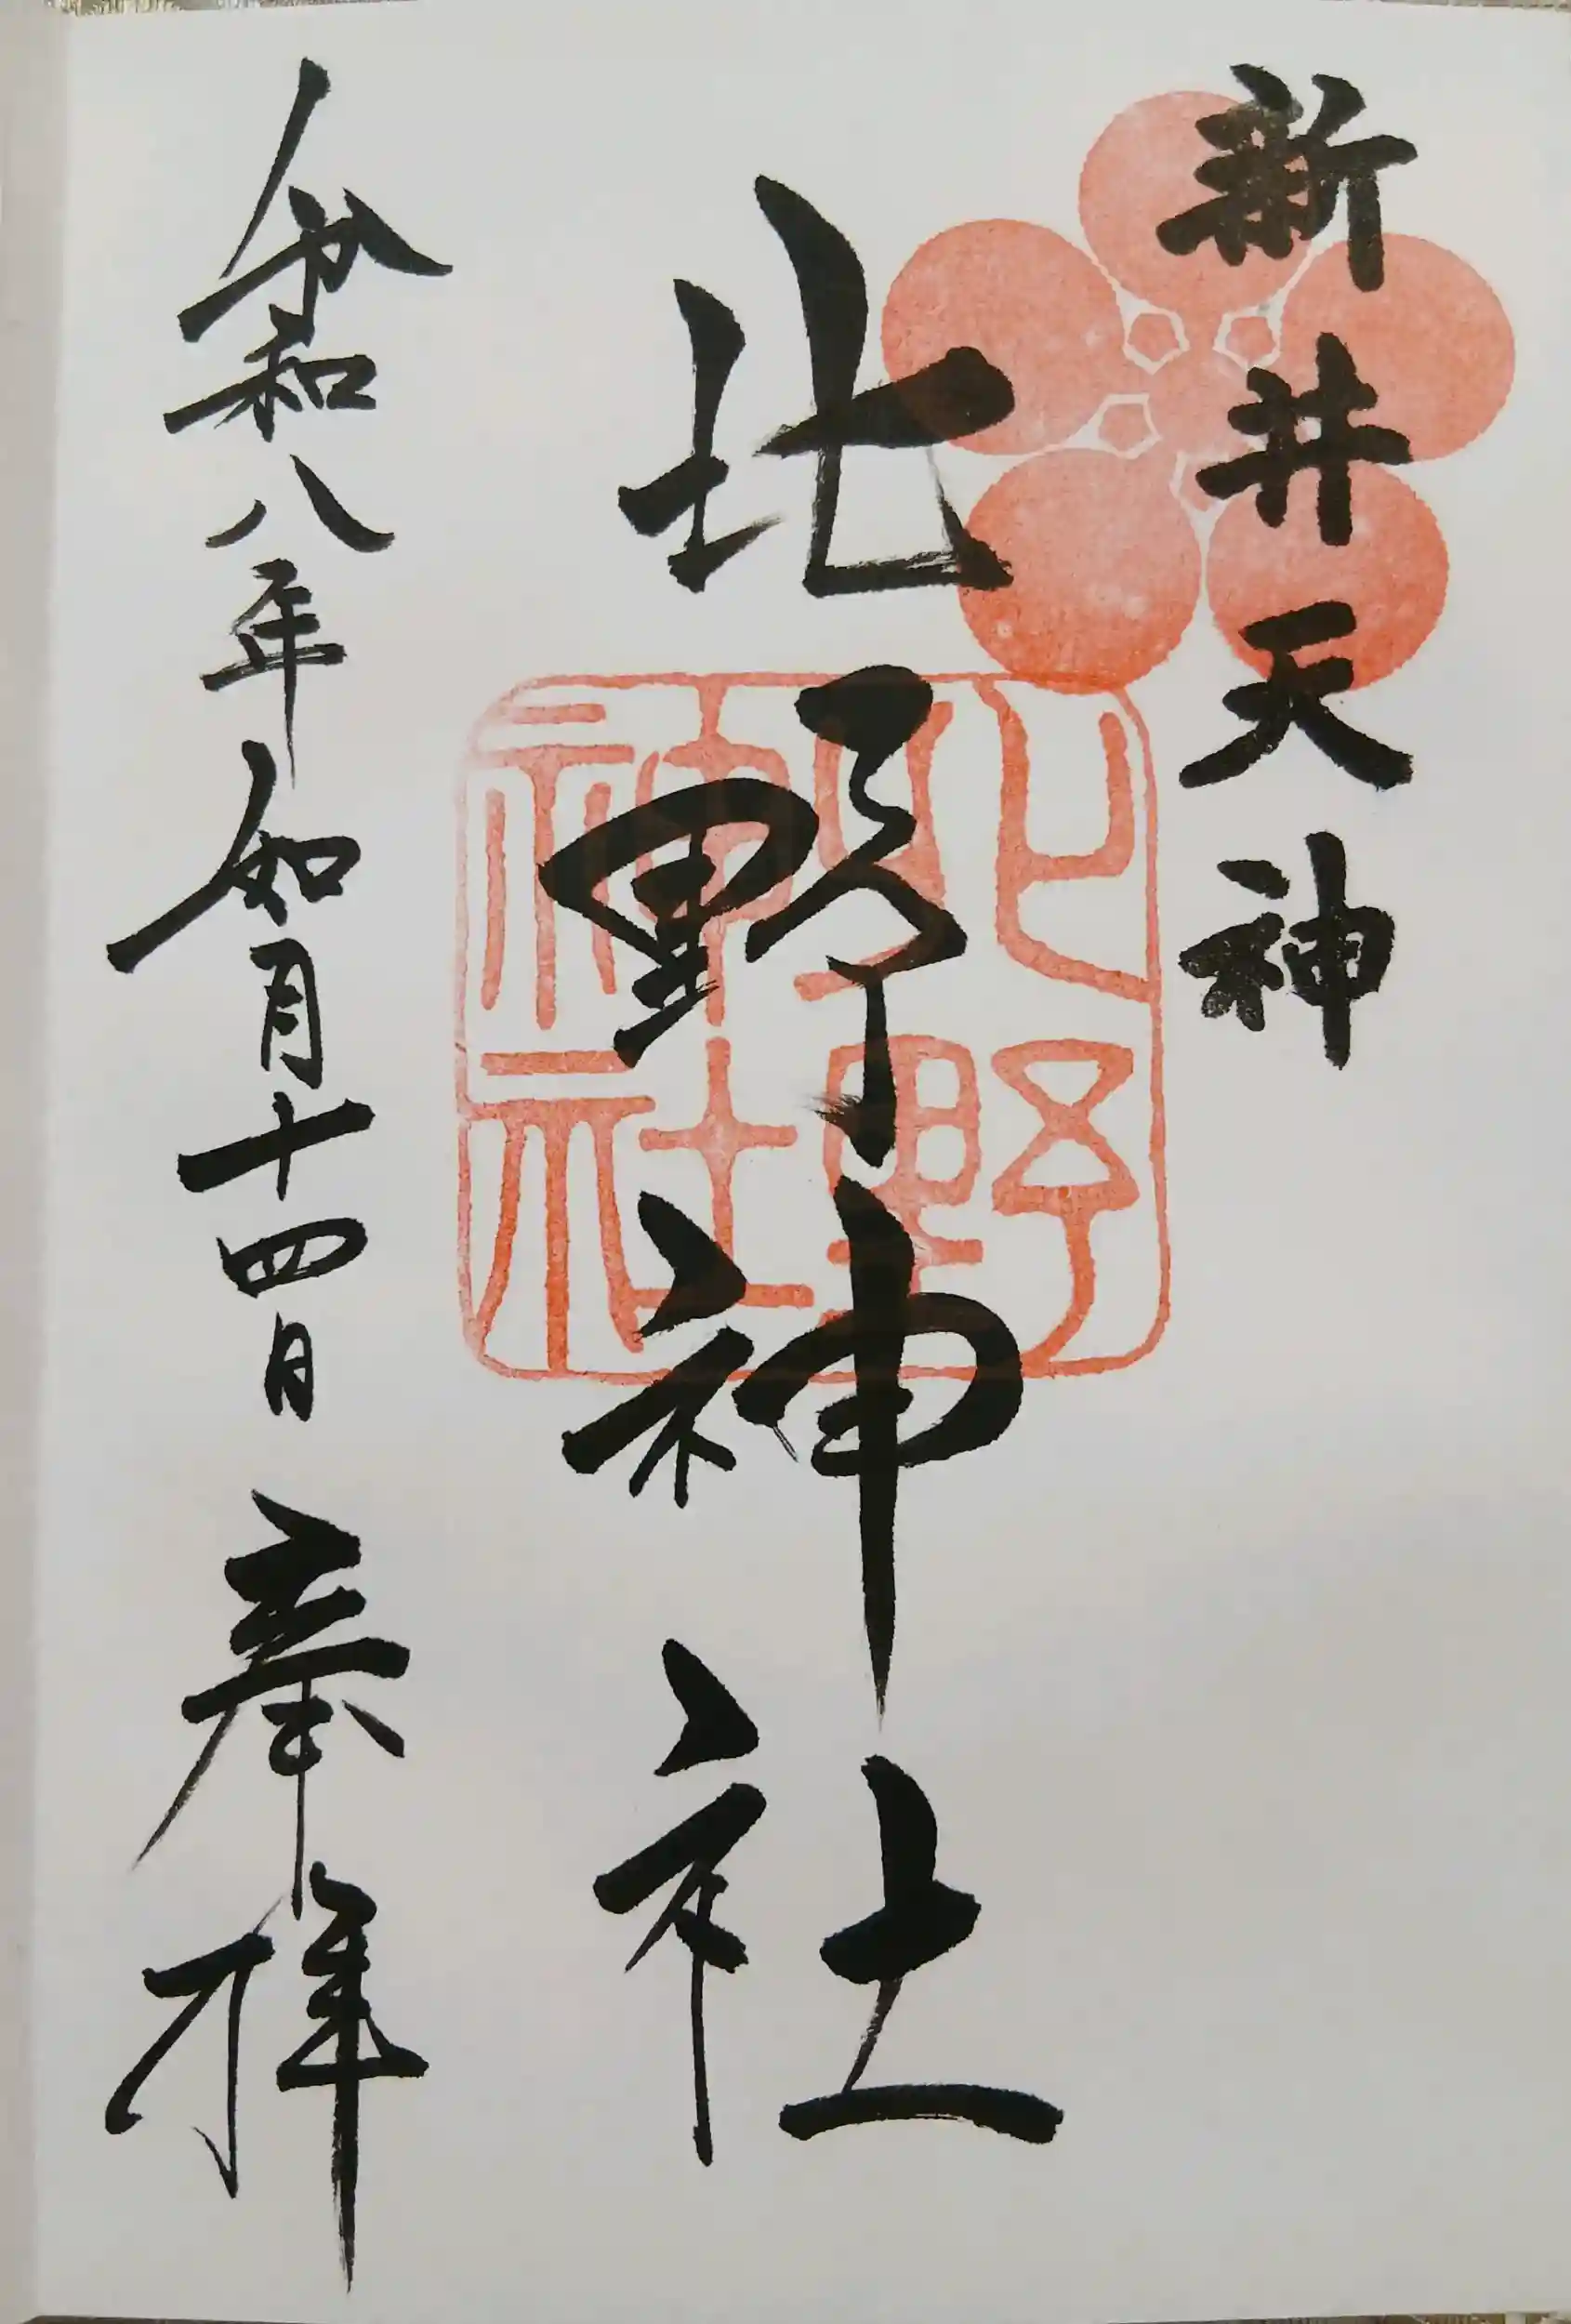 新井天神
北野神社
北野神社
令和八年如月十四日 奉拝